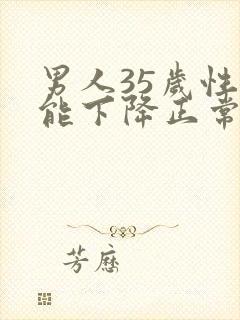 男人35岁性
能下降正常
芳历